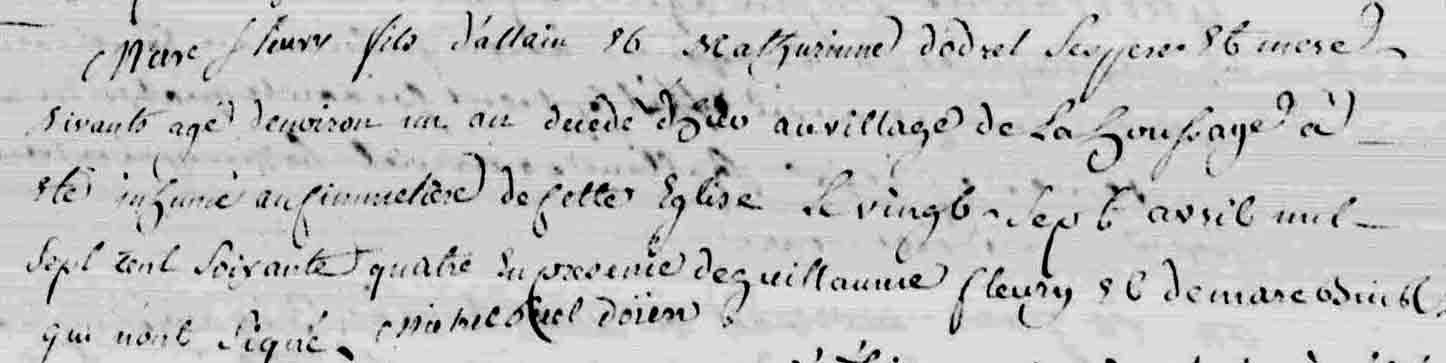 Marc fleury fils d'allain et Mathurinne dodrel ses pere et mere
vivants agé d'environ un an decedé d'hier au village de La houssaye à
eté inhumé au cimmetiere de cette Eglise Le vingt-sept avril mil
sept cent soixante quatre En presence de guillaume fleury et de marc
qui n'ont signé. doïen.